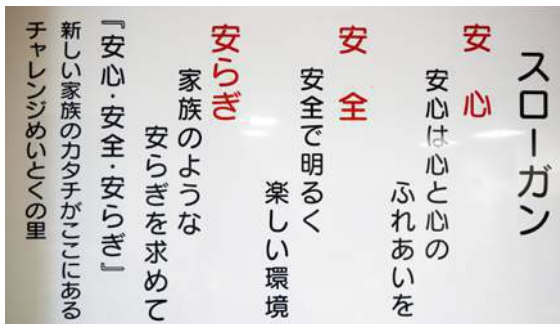 スローガン
安 心
安心は心と心の
ふれあいを
安 全
安全で明るく
楽しい環境
安らぎ
家族のような
安らぎを求めて
『安心・安全・安らぎ』
新しい家族のカタチがここにある
チャレンジめいとくの里